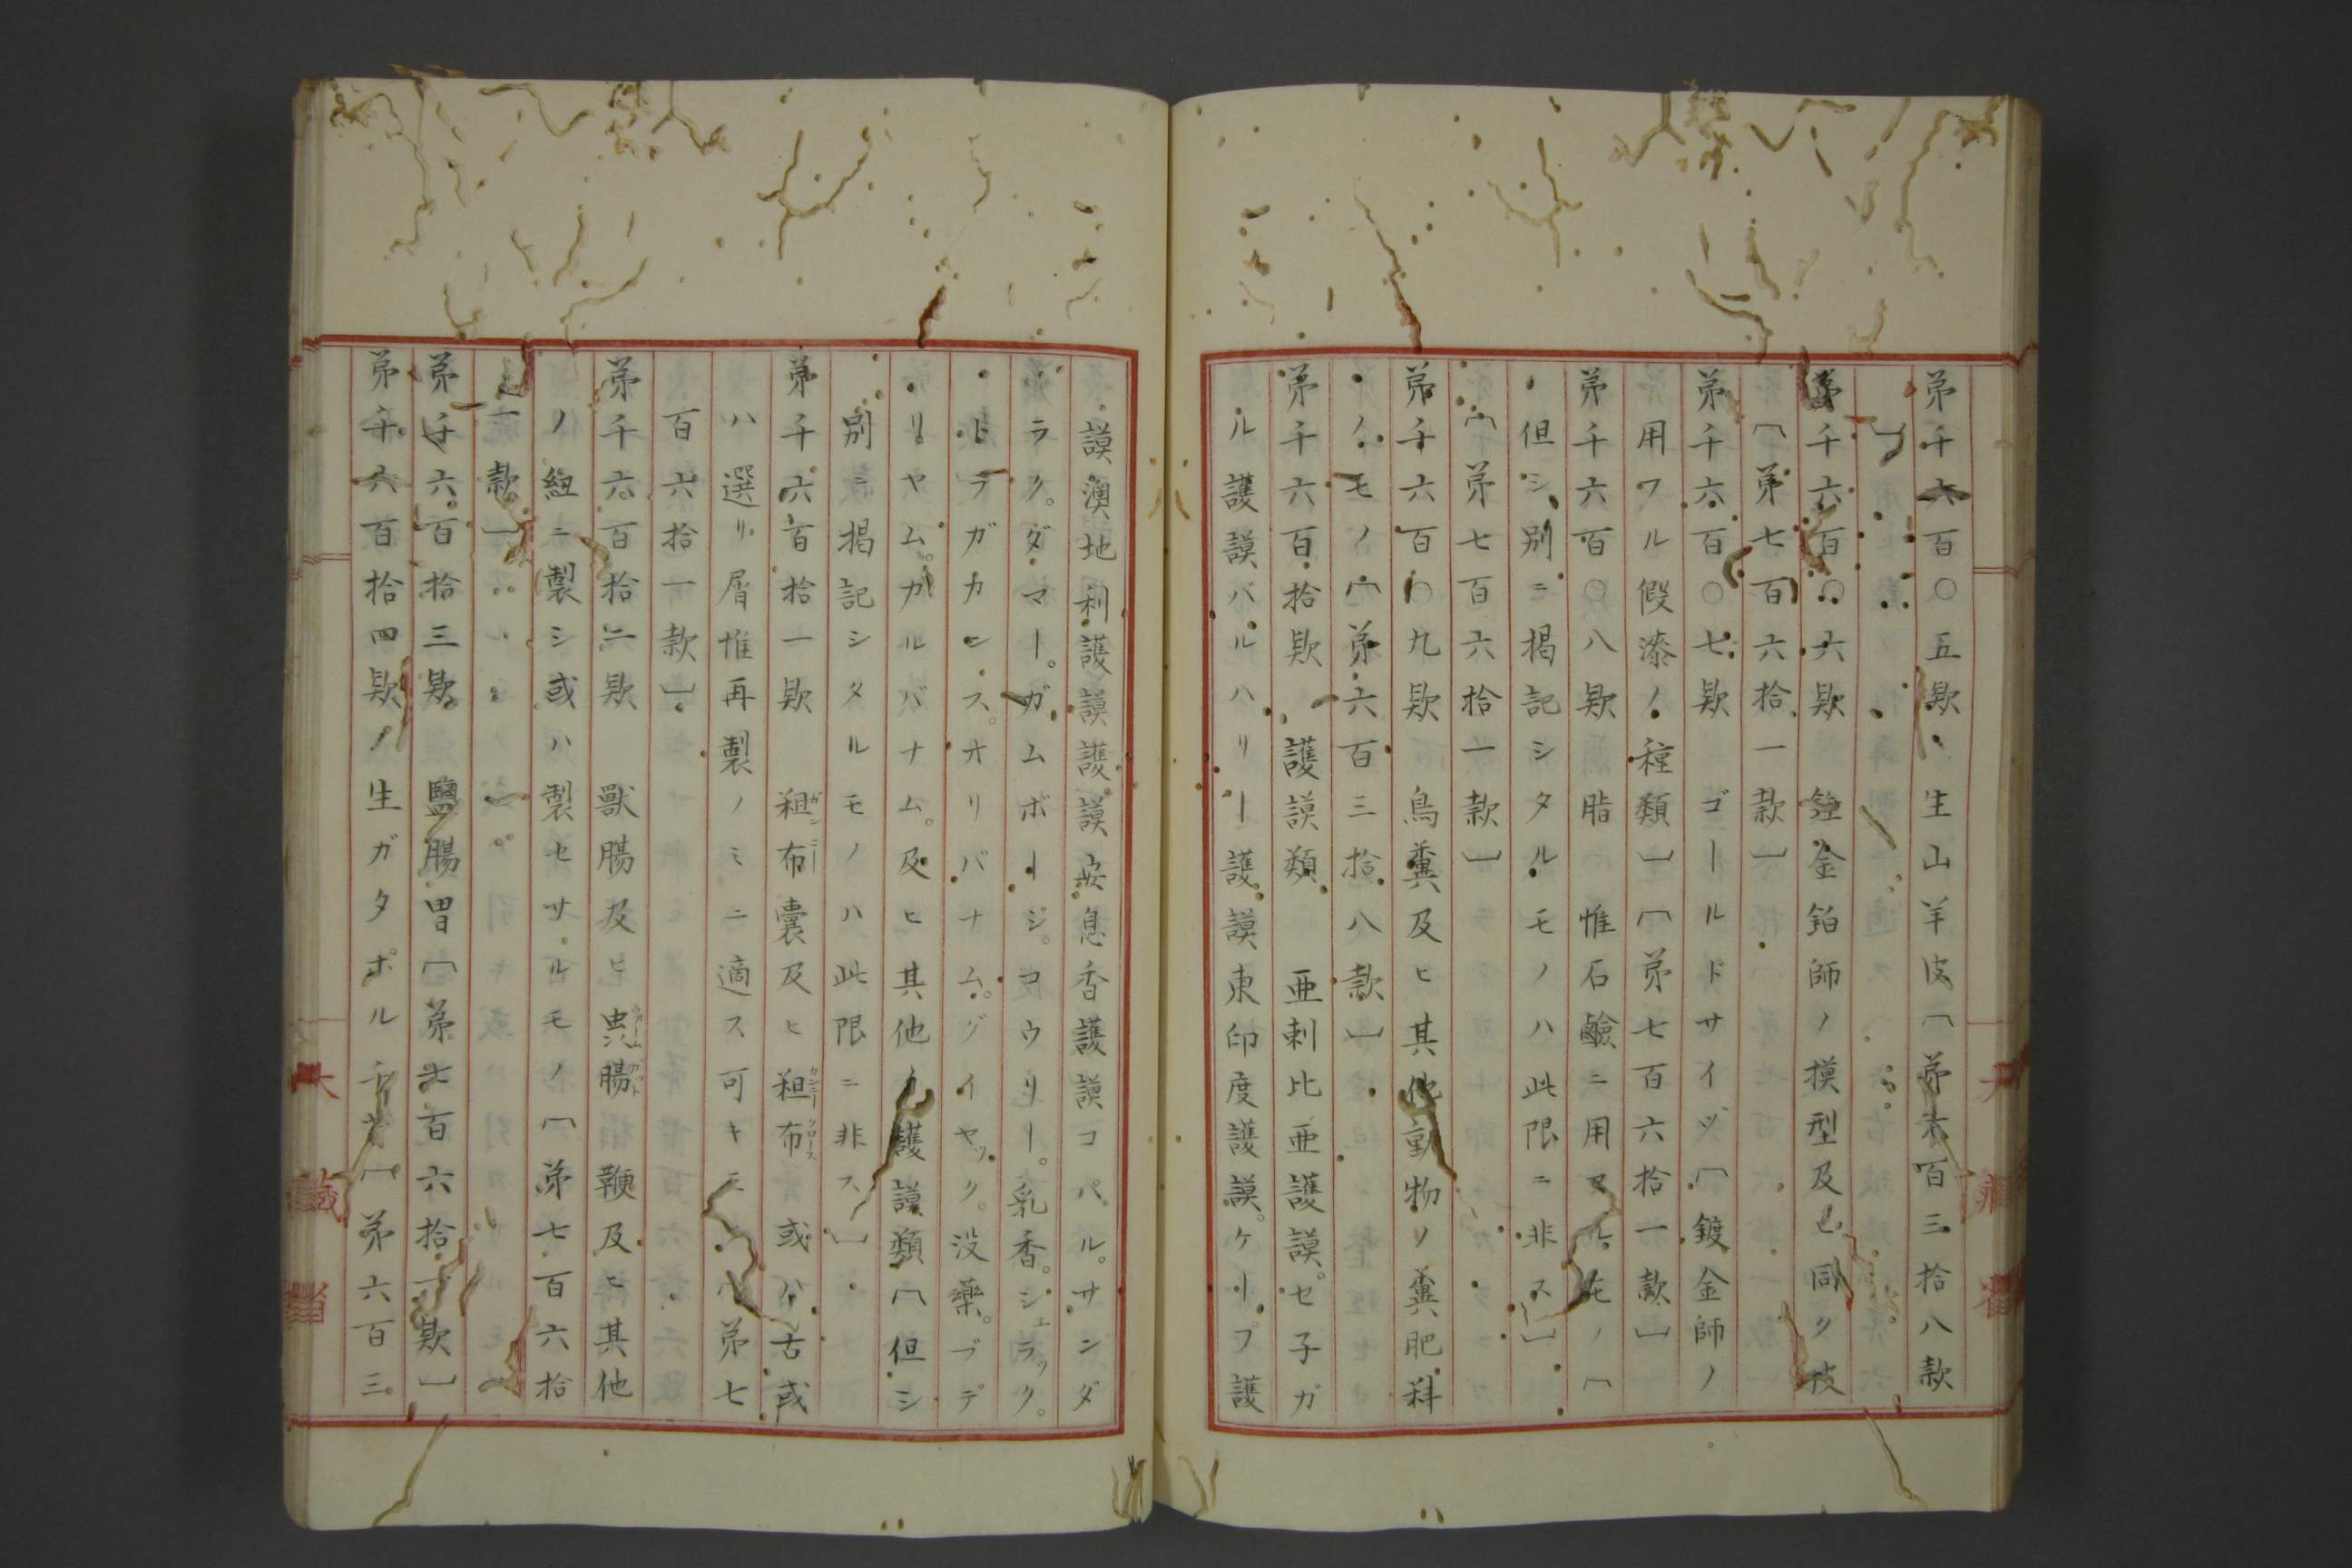 第千六百〇五欵 生山羊皮〔第六百三拾八款
〕
第千六百〇六欵 鍍金鉑師ノ摸型及ヒ同シク皮
〔第七百六拾一款〕
第千六百〇七欵 ゴールドサイヅ〔鍍金師ノ
用フル假漆ノ種類〕〔第七百六拾一款〕
第千六百〇八欵 脂 惟石鹼ニ用フルモノ〔
但シ別ニ掲記シタルモノハ此限ニ非ス〕
〔第七百六拾一款〕
第千六百〇九欵 鳥糞及ヒ其他動物ノ糞肥料
ノモノ〔第六百三拾八款〕
第千六百拾欵 護謨類 亜剌比亜護謨。セ子ガ
ル護謨バルハリー護謨東印度護謨。ケープ護
謨澳地利護謨護謨安息香護謨コパル。サンダ
ラク。ダマー。ガムボージ。コウリー。乳香。シェラック。
トラガカンス。オリバナム。グイヤック。没藥。ブデ
リヤム。ガルバナム。及ヒ其他ノ護謨類〔但シ
別ニ掲記シタルモノハ此限ニ非ス〕
第千六百拾一欵 粗布囊及ヒ粗布 或ハ古或
ハ選リ屑惟再製ノミニ適ス可キモノ〔第七
百六拾一款〕
第千六百拾二欵 獸腸及ヒ虫腸 鞭及ヒ其他
ノ紐ニ製シ或ハ製セサルモノ〔第七百六拾
一款〕
第千六百拾三欵 鹽腸胃〔第七百六拾一欵〕
第千六百拾四欵 生ガタポルチャ〔第六百三